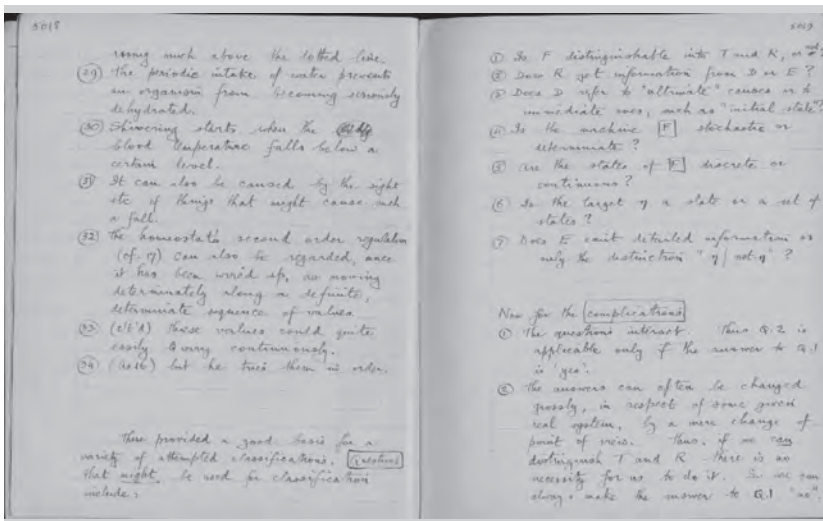 5018
rising much above the dotted line.
(29) The periodic intake of water prevents
an organism from becoming seriously
dehydrated.
(30) Shivering starts when the
blood temperature falls below a
certain level.
(31) It can also be caused by the sight
etc of things that might cause such
a fall.
(32) The homeostat's second order regulation
(cf. 17) can also be regarded, once
it has been wired up, as moving
determinately along a definite,
determinate sequence of values.
(33) (ct'd) These values could quite
easily vary continuously.
(34) (as 16) but he tries them in order.
These provided a good basis for a
variety of attempted classifications. Questions
that might be used for classification
include:
5019
① Is F distinguishable into T and R, or not?
② Does R get information from D or E?
③ Does D refer to "ultimate" causes or to
immediate ones, such as "initial state"?
④ Is the machine F stochastic or
determinate?
⑤ Are the states of F discrete or
continuous?
⑥ Is the target η a state or a set of
states?
⑦ Does E emit detailed information or
only the distinction "η / not-η"?
Now for the complications
① The questions interact. Thus Q.2 is
applicable only if the answer to Q.1
is 'yes'.
② The answers can often be changed
grossly, in respect of some given
real system, by a mere change of
point of view. Thus, if we can
distinguish T and R there is no
necessity for us to do it. So we can
always make the answer to Q.1 "no".